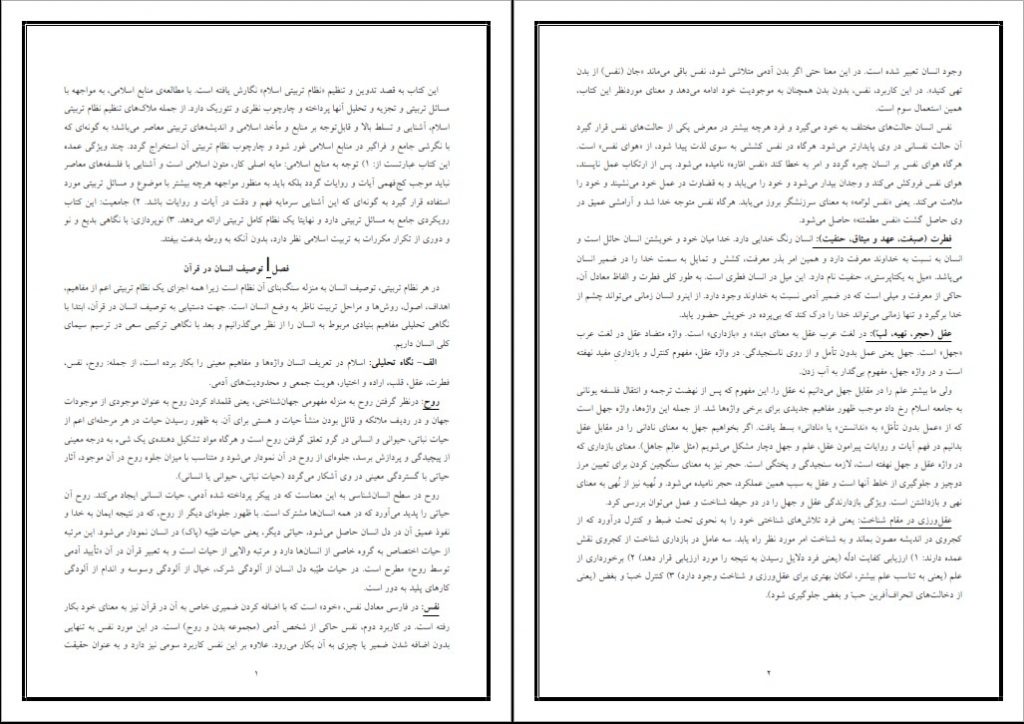 این کتاب به قصد تدوین و تنظیم «نظام تربیتی اسلام» نگارش یافته است. با مطالعه‌ی منابع اسلامی، به مواجهه با
مسائل تربیتی و تجزیه و تحلیل آنها پرداخته و چارچوب نظری و تئوریک دارد. از جمله ملاک‌های تنظیم نظام تربیتی
اسلام، آشنایی و تسلط بالا و قابل‌توجه بر منابع و مأخذ اسلامی و اندیشه‌های تربیتی معاصر می‌باشد؛ به گونه‌ای که
با نگرشی جامع و فراگیر در منابع اسلامی غور شود و چارچوب نظام تربیتی آن استخراج گردد. چند ویژگی عمده
این کتاب عبارتست از: ۱) توجه به منابع اسلامی: مایه اصلی کار، متون اسلامی است و آشنایی با فلسفه‌های معاصر
نباید موجب کج‌فهمی آیات و روایات گردد بلکه باید به منظور مواجهه هرچه بیشتر با موضوع و مسائل تربیتی مورد
استفاده قرار گیرد به گونه‌ای که این آشنایی سرمایه فهم و دقت در آیات و روایات باشد. ۲) جامعیت: این کتاب
رویکردی جامع به مسائل تربیتی دارد و نهایتا یک نظام کامل تربیتی ارائه می‌دهد. ۳) نوپردازی: با نگاهی بدیع و نو
و دوری از تکرار مکررات به تربیت اسلامی نظر دارد، بدون آنکه به ورطه بدعت بیفتد.
فصل ا توصیف انسان در قرآن
در هر نظام تربیتی، توصیف انسان به منزله سنگ‌بنای آن نظام است زیرا همه اجزای یک نظام تربیتی اعم از مفاهیم،
اهداف، اصول، روش‌ها و مراحل تربیت ناظر به وضع انسان است. جهت دستیابی به توصیف انسان در قرآن، ابتدا با
نگاهی تحلیلی مفاهیم بنیادی مربوط به انسان را از نظر می‌گذرانیم و بعد با نگاهی ترکیبی سعی در ترسیم سیمای
کلی انسان داریم.
الف- نگاه تحلیلی: اسلام در تعریف انسان واژه‌ها و مفاهیم معینی را بکار برده است، از جمله: روح، نفس،
فطرت، عقل، قلب، اراده و اختیار، هویت جمعی و محدودیت‌های آدمی.
روح: درنظر گرفتن روح به منزله مفهومی جهان‌شناختی، یعنی قلمداد کردن روح به عنوان موجودی از موجودات
جهان و در ردیف ملائکه و قائل بودن منشأ حیات و هستی برای آن. به ظهور رسیدن حیات در هر مرحله‌ای اعم از
حیات نباتی، حیوانی و انسانی در گرو تعلق گرفتن روح است و هرگاه مواد تشکیل دهنده‌ی یک شیء به درجه معینی
از پیچیدگی و پردازش برسد، جلوه‌ای از روح در آن نمودار می‌شود و متناسب با میزان جلوه روح در آن موجود، آثار
حیاتی با گستردگی معینی در وی آشکار می‌گردد (حیات نباتی، حیوانی یا انسانی).
روح در سطح انسان‌شناسی به این معناست که در پیکر پرداخته شده آدمی، حیات انسانی ایجاد می‌کند. روح آن
حیاتی را پدید می‌آورد که در همه انسان‌ها مشترک است. با ظهور جلوه‌ای دیگر از روح، که در نتیجه ایمان به خدا و
نفوذ عمیق آن در دل انسان حاصل می‌شود، حیاتی دیگر، یعنی حیات طیّبه (پاک) در انسان نمودار می‌شود. این مرتبه
از حیات اختصاص به گروه خاصی از انسان‌ها دارد و مرتبه والایی از حیات است و به تعبیر قرآن در آن «تأیید آدمی
توسط روح» مطرح است. در حیات طیّبه دل انسان از آلودگی شرک، خیال از آلودگی وسوسه و اندام از آلودگی
کارهای پلید به دور است.
نفس: در فارسی معادل نفس، «خود» است که با اضافه کردن ضمیری خاص به آن در قرآن نیز به معنای خود بکار
رفته است. در کاربرد دوم، نفس حاکی از شخص آدمی (مجموعه بدن و روح) است. در این مورد نفس به تنهایی
بدون اضافه شدن ضمیر یا چیزی به آن بکار می‌رود. علاوه بر این نفس کاربرد سومی نیز دارد و به عنوان حقیقت
۱
وجود انسان تعبیر شده است. در این معنا حتی اگر بدن آدمی متلاشی شود، نفس باقی می‌ماند «جان (نفس) از بدن
تهی کنید». در این کاربرد، نفس، بدون بدن همچنان به موجودیت خود ادامه می‌دهد و معنای موردنظر این کتاب،
همین استعمال سوم است.
نفس انسان حالت‌های مختلف به خود می‌گیرد و فرد هرچه بیشتر در معرض یکی از حالت‌های نفس قرار گیرد
آن حالت نفسانی در وی پایدارتر می‌شود. هرگاه در نفس کششی به سوی لذت پیدا شود، از «هوای نفس» است.
هرگاه هوای نفس بر انسان چیره گردد و امر به خطا کند «نفس امّاره» نامیده می‌شود. پس از ارتکاب عمل ناپسند،
هوای نفس فروکش می‌کند و وجدان بیدار می‌شود و خود را می‌یابد و به قضاوت در عمل خود می‌نشیند و خود را
ملامت می‌کند. یعنی «نفس لوامه» به معنای سرزنشگر بروز می‌یابد. هرگاه نفس متوجه خدا شد و آرامشی عمیق در
وی حاصل گشت «نفس مطمئنه» حاصل می‌شود.
فطرت (صبغت، عهد و میثاق، حنفیت): انسان رنگ خدایی دارد. خدا میان خود و خویشتن انسان حائل است و
انسان به نسبت به خداوند معرفت دارد و همین امر بذر معرفت، کشش و تمایل به سمت خدا را در ضمیر انسان
می‌پاشد. «میل به یکتاپرستی»، حنفیت نام دارد. این میل در انسان فطری است. به طور کلی فطرت و الفاظ معادل آن،
حاکی از معرفت و میلی است که در ضمیر آدمی نسبت به خداوند وجود دارد. از اینرو انسان زمانی می‌تواند چشم از
خدا برگیرد و تنها زمانی می‌تواند خدا را درک کند که بی‌پرده در خویش حضور یابد.
عقل (حجر، نهیه، لبّ): در لغت عرب عقل به معنای «بند» و «بازداری» است. واژه متضاد عقل در لغت عرب
«جهل» است. جهل یعنی عمل بدون تأمل و از روی ناسنجیدگی. در واژه عقل، مفهوم کنترل و بازداری مفید نهفته
است و در واژه جهل، مفهوم بی‌گدار به آب زدن.
ولی ما بیشتر علم را در مقابل جهل می‌دانیم نه عقل را. این مفهوم که پس از نهضت ترجمه و انتقال فلسفه یونانی
به جامعه اسلام رخ داد موجب ظهور مفاهیم جدیدی برای برخی واژه‌ها شد. از جمله این واژه‌ها، واژه جهل است
که از «عمل بدون تأمّل» به «ندانستن» یا «نادانی» بسط یافت. اگر بخواهیم جهل به معنای نادانی را در مقابل عقل
بدانیم در فهم آیات و روایات پیرامون عقل، علم و جهل دچار مشکل می‌شویم (مثل عالمِ جاهل). معنای بازداری که
در واژه عقل و جهل نهفته است، لازمه سنجیدگی و پختگی است. حجر نیز به معنای سنگچین کردن برای تعیین مرز
دوچیز و جلوگیری از خلط آنها است و عقل به سبب همین عملکرد، حجر نامیده می‌شود. و نُهیه نیز از نُهی به معنای
نهی و بازداشتن است. ویژگی بازدارندگی عقل و جهل را در دو حیطه شناخت و عمل می‌توان بررسی کرد.
عقل‌ورزی در مقام شناخت: یعنی فرد تلاش‌های شناختی خود را به نحوی تحت ضبط و کنترل درآورد که از
کجروی در اندیشه مصون بماند و به شناخت امر مورد نظر راه یابد. سه عامل در بازداری شناخت از کجروی نقش
عمده دارند: ۱) ارزیابی کفایت ادلّه (یعنی فرد دلایل رسیدن به نتیجه را مورد ارزیابی قرار دهد) ۲) برخورداری از
علم (یعنی به تناسب علم بیشتر، امکان بهتری برای عقل‌ورزی و شناخت وجود دارد) ۳) کنترل حبّ و بغض (یعنی
از دخالت‌های انحراف‌آفرین حبّ و بغض جلوگیری شود).
۲